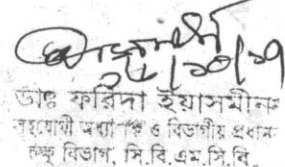 ডাঃ ফরিদা ইয়াসমীন
সহযোগী অধ্যাপক ও বিভাগীয় প্রধান
চক্ষু বিভাগ, সি.বি.এম.সি.বি.